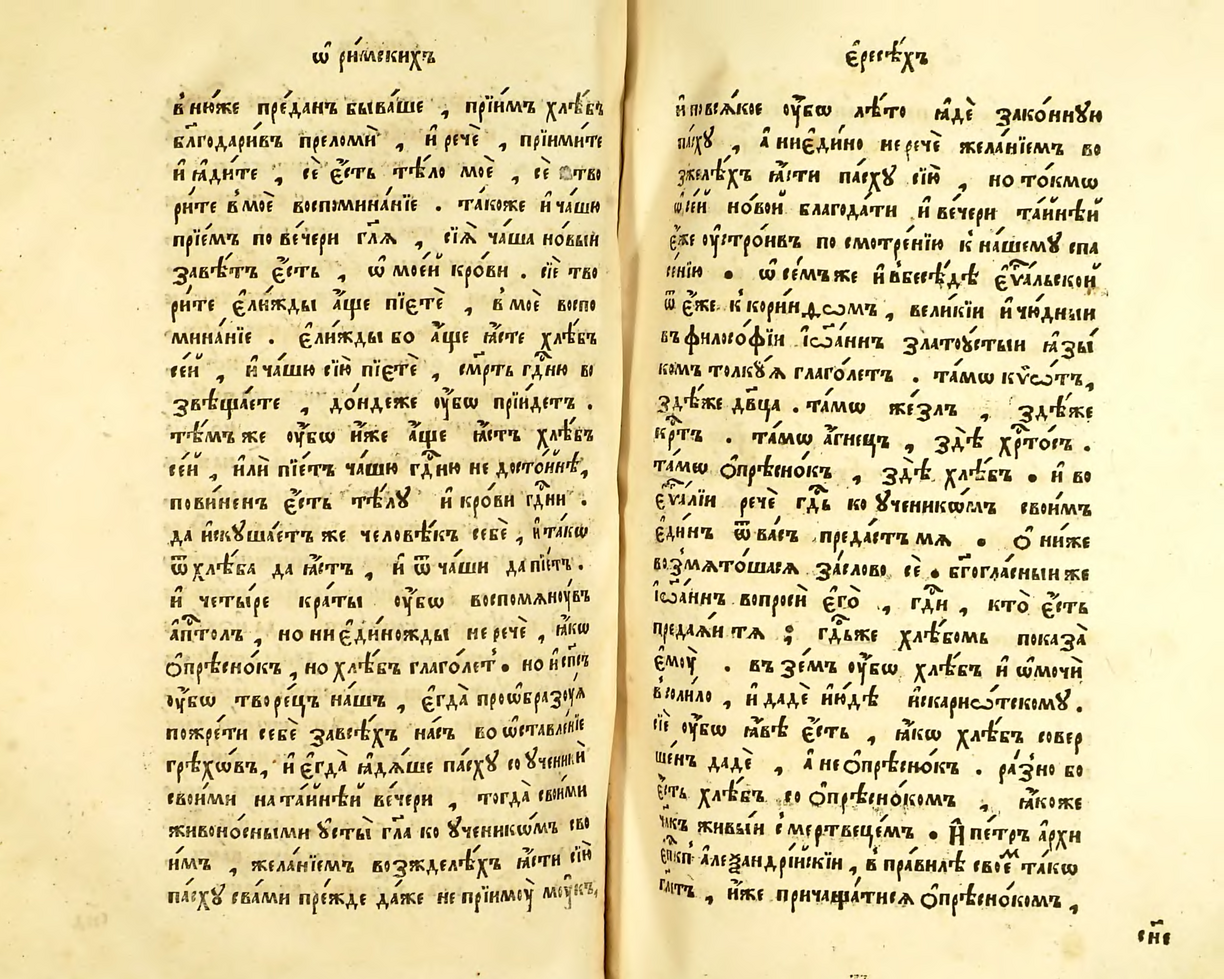 ѡ҆ ри́мскихъ
в̾ ню́же пре́данъ быва́ше , прїи́мъ хлѣ́бъ
бл҃годари́въ преломѝ , и҆ речѐ , прїими́те
и҆ ꙗ҆ди́те , сѐ є҆́сть тѣ́ло моѐ , сѐ тво
ри́те в̾ моѐ воспомина́нїе . та́коже и҆ ча́шю
прїе́мъ по ве́чери гл҃ѧ , сїѧ̀ ча́ша но́выи
завѣ́тъ є҆́сть , ѡ҆ мое́й кро́ви . сїѐ тво
ри́те є҆ли́жды а҆́ще пїетѐ , в̾ моѐ воспо
мина́нїе . є҆ли́жды бо а҆́ще ꙗ҆́сте хлѣ́бъ
се́й , и҆ ча́шю сїю̀ пїетѐ , сме́рть гд҇ню во
звѣща́ете , до́ндеже ᲂу҆́бѡ прїи́детъ .
тѣ́мъ же ᲂу҆́бѡ и҆́же а҆́ще ꙗ҆́стъ хлѣ́бъ
се́й , и҆лѝ пїе́тъ ча́шю гд҇ню не досто́йнѣ ,
пови́ненъ є҆́сть тѣ́лꙋ и҆ кро́ви гд҇ни .
да и҆скꙋша́етъ же человѣ́къ себѐ , и҆ та́кѡ
ѿ хлѣ́ба да ꙗ҆́стъ , и҆ ѿ ча́ши да пїе́тъ .
и҆ четы́ре кра́ты ᲂу҆́бѡ воспомѧнꙋ́въ
а҆пⷭ҇толъ , но ни є҆ди́ножды не речѐ , ꙗ҆́кѡ
ѻ҆прѣсно́къ , но хлѣ́бъ глаго́летъ . но и҆ сп҃съ
ᲂу҆́бѡ творе́цъ на́шъ , є҆гда̀ проѡбразꙋ́ѧ
пожре́ти себѐ за всѣ́хъ на́съ во ѡ҆ставле́нїе
грѣхѡ́въ , и҆ є҆гда̀ ꙗ҆дѧ́ше па́схꙋ со ᲂу҆ченикѝ
свои́ми на та́йнѣй ве́чери , тогда̀ свои́ми
живоно́сными ᲂу҆сты̀ гл҃а ко ᲂу҆ченикѡ́мъ сво
и́мъ , жела́нїемъ возжделѣ́хъ ꙗ҆́сти сїю̀
па́схꙋ с ва́ми пре́жде да́же не прїимꙋ̀ мꙋ́къ ,
є҆́ресѣхъ
и҆ по всѧ́кое ᲂу҆́бѡ лѣ́то ꙗ҆дѐ зако́ннꙋю
па́схꙋ , а҆ ни є҆ди́но не речѐ жела́нїемъ во
зжелѣ́хъ ꙗ҆́сти па́схꙋ сїю̀ , но то́кмѡ
ѡ҆ се́й но́вой благода́ти и҆ ве́чери та́йнѣй
є҆́же ᲂу҆стро́ивъ по смотре́нїю к̾ на́шемꙋ спа
се́нїю . ѡ҆ се́мъ же и҆ в̾ бесѣ́дѣ є҆ѵⷢ҇альской
ѿ є҆́же к̾ кори́нѳѡмъ , вели́кїи и҆ чю́дныи
въ филосо́фїи і҆ѡа́ннъ златоꙋ́стыи ꙗ҆зы́
комъ толкꙋ́ѧ глаго́летъ . та́мѡ кїѵѡ́тъ ,
здѣ́ же дв҃ца . та́мѡ же́злъ , здѣ́ же
крⷭ҇тъ . та́мѡ а҆́гнецъ , здѣ̀ хрⷭ҇то́съ .
та́мѡ ѻ҆прѣсно́къ , здѣ̀ хлѣ́бъ . и҆ во
є҆ѵⷢ҇алїи речѐ гд҇ь ко ᲂу҆ченикѡ́мъ свои́мъ
є҆ди́нъ ѿ ва́съ преда́стъ мѧ . ѻ҆ ни́же
возмѧто́шасѧ за сло́во сѐ . бг҃огла́сныи же
і҆ѡа́ннъ вопросѝ є҆го̀ , гд҇и , кто̀ є҆́сть
предаѧ́и тѧ ; гд҇ь же хлѣ́бомь показа̀
є҆мꙋ̀ . въ зе́мъ ᲂу҆́бѡ хлѣ́бъ и҆ ѡ҆мочѝ
в̾ соли́ло , и҆ дадѐ и҆ю́дѣ и҆скариѡ́тскомꙋ .
сїѐ ᲂу҆́бѡ ꙗ҆́вѣ є҆́сть , ꙗ҆́кѡ хлѣ́бъ совер
ше́нъ дадѐ , а҆ не ѻ҆прѣсно́къ . ра́зно бо
є҆́сть хлѣ́бъ со ѻ҆прѣсно́комъ , ꙗ҆́коже
живы́и с̾ мертвеце́мъ . И҆ пе́тръ а҆рхи
є҆пⷭ҇кпъ а҆леѯандрі́йскїи , в̾ пра́вилѣ свое́мъ та́кѡ
гл҃етъ , и҆́же причаща́тисѧ ѻ҆прѣсно́комъ ,
сн҃е